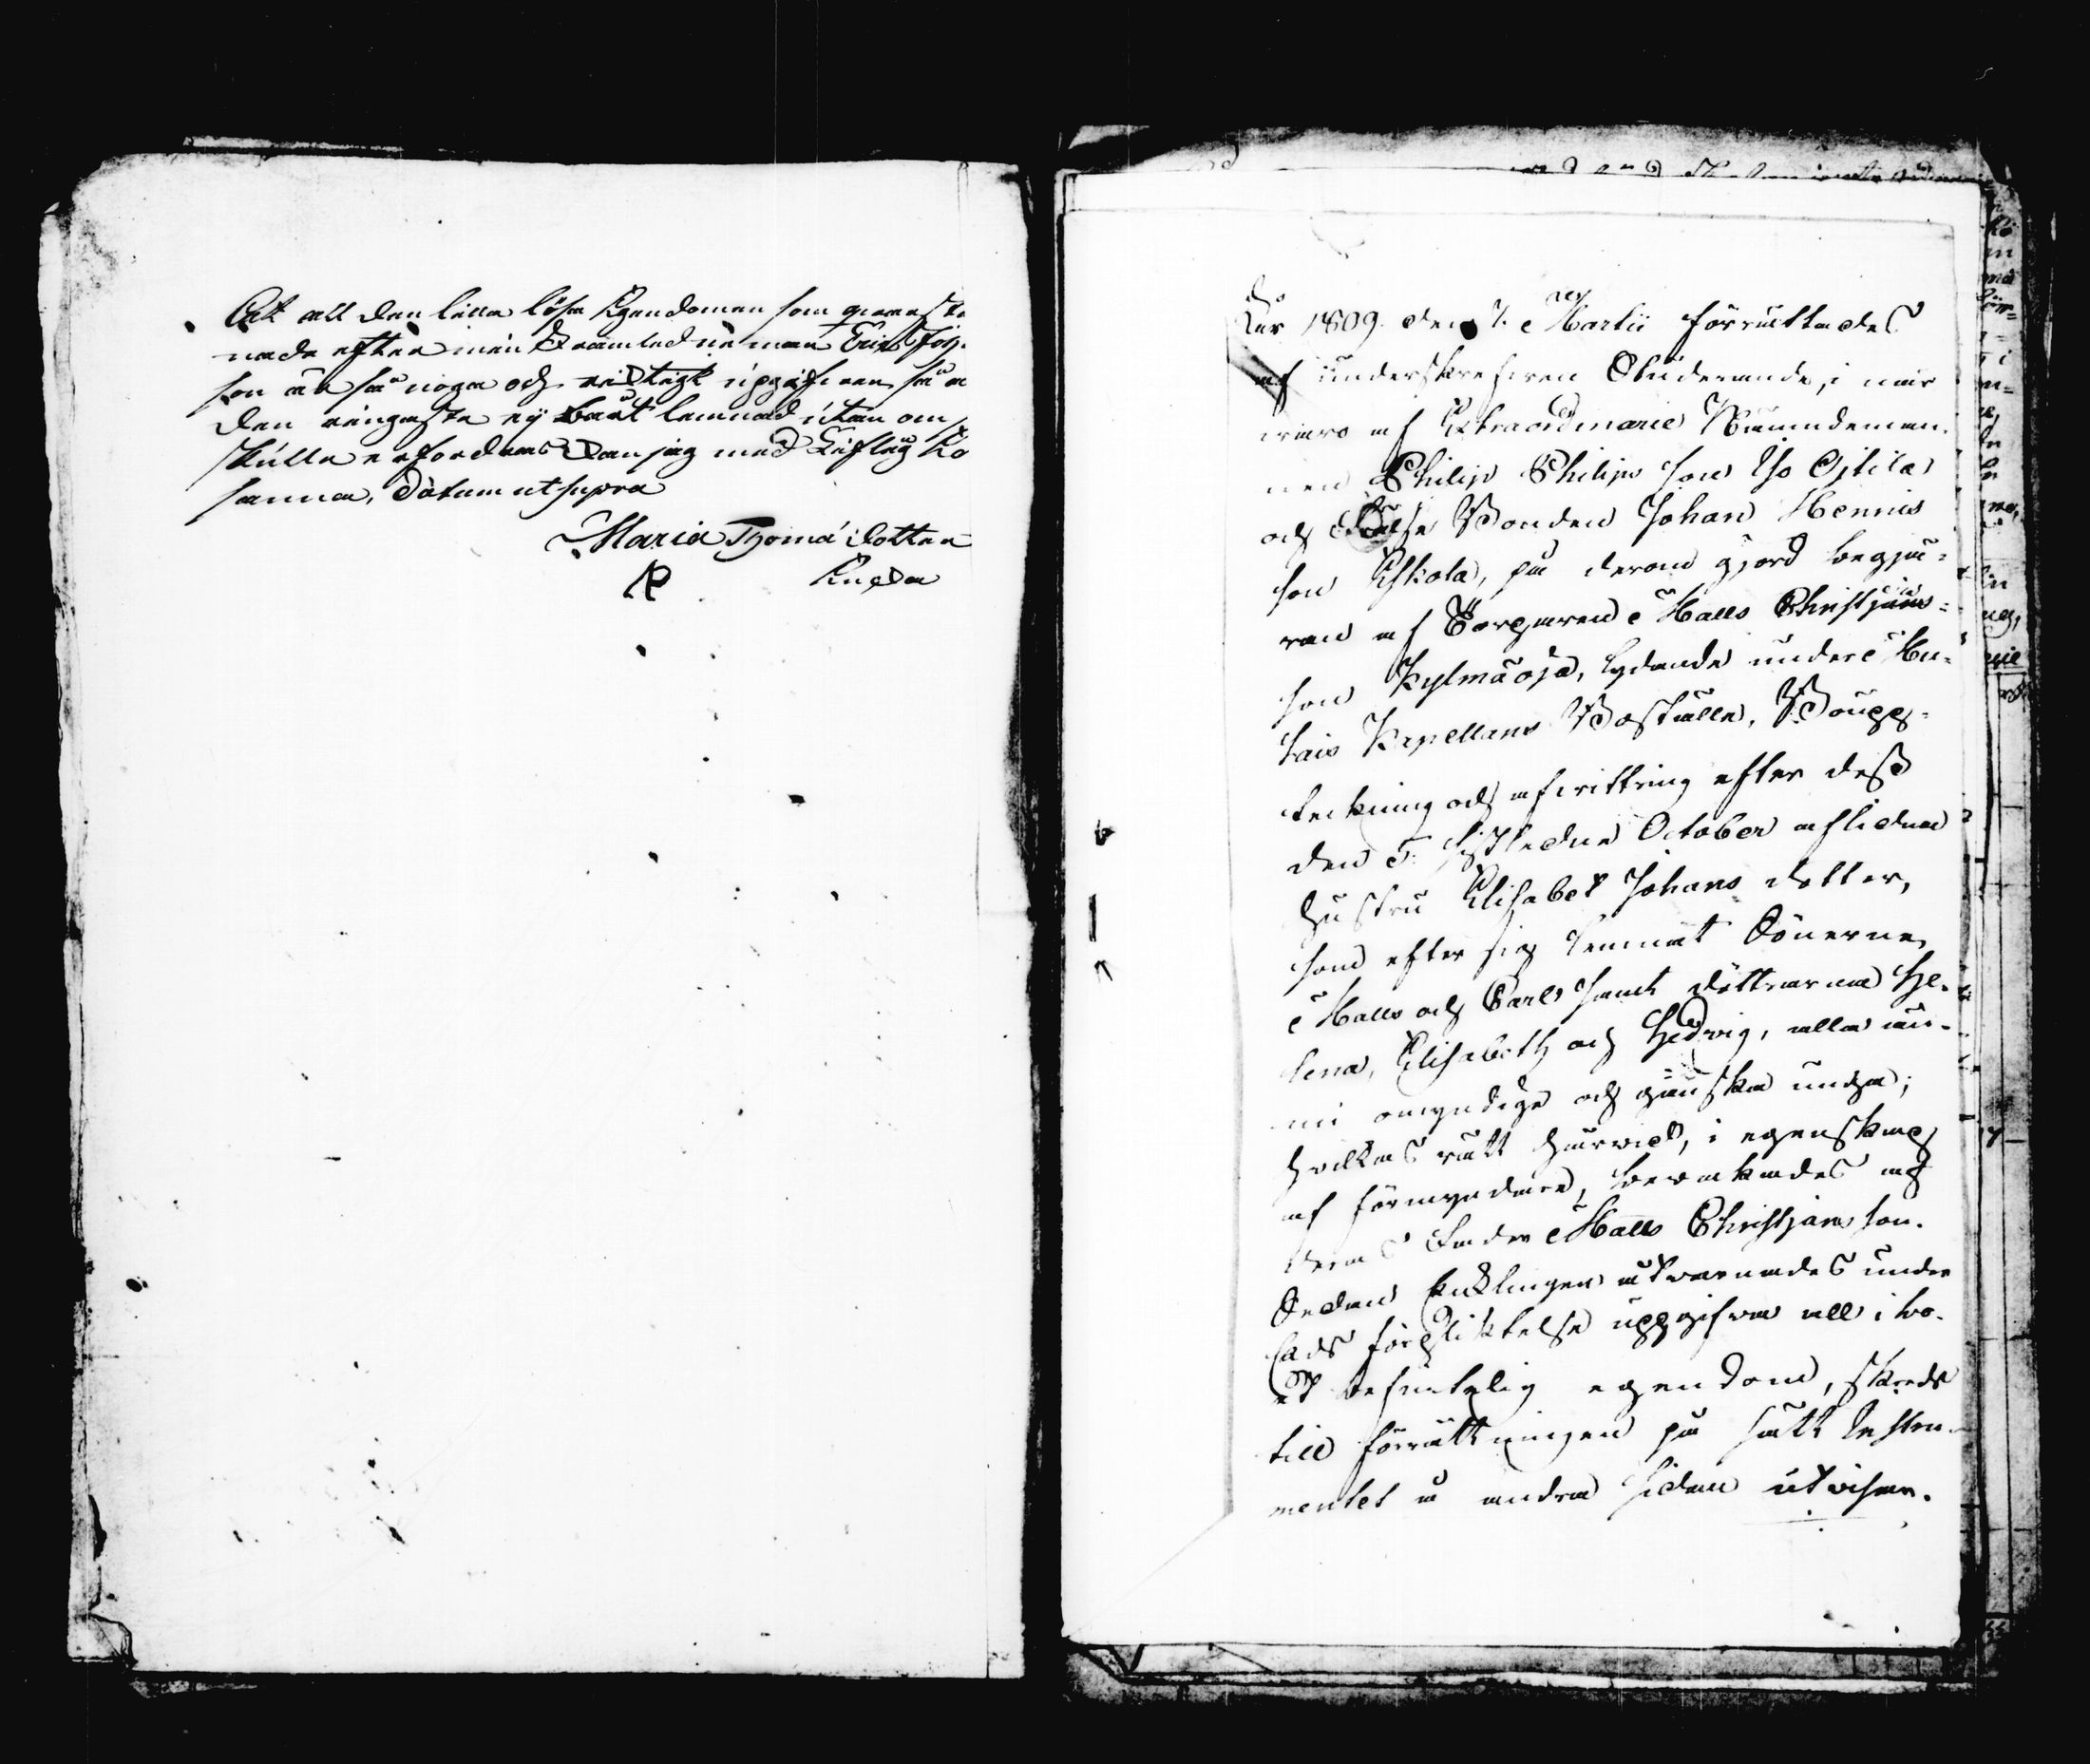 Att all den lilla lösa Egendomen som qvarsta
nade efter min Framledne man Eric Joh.
son är så noga och redligt upgifven så at
den ringaste ej bårt lemnad utan om
skulle erfordras kan jag med Lifl. Ed
sanna, Datum ut supra
Maria Thomæ dotter
Enka
År 1809 den 7. Martii förrättades
af underskrefven Studerande, i när
varo af Extraordinarie Nämndeman
nen Philip Philips son Iso Ojtila
och Frälse Bonden Johan Hennis
son Eskola, på derom gjord begjä-
ran af Torparen Matts Christjans-
son Kylmäoja, lydande under Mu-
hais Kapellans Boställe, Boupp-
teckning och afvittring efter dess
den 5. sistledne October aflidna
hustru Elisabet Johans dotter,
som efter sig lemnat Sönerne
Matts och Carl samt döttrarna He-
lena, Elisabeth och Hedvig, alla än-
nu omyndige och ganska unga;
hvilkas rätt härvid, i egenskap
af förmyndare, bevakades af
deras Fader Matts Christjans son.
Sedan Enklingen åtvarnades under
Eds förpliktelse uppgifva all i bo-
et befintelig egendom, skreds
till förrättningen på sätt Instru-
mentet å andra sidan utvisar.